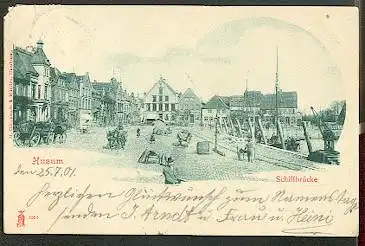 Husum
Schiffbrücke
den 25.7.01.
Herzlichen Glückwunsch zum Namenstage
senden S. Arndt u. Frau u. Heini